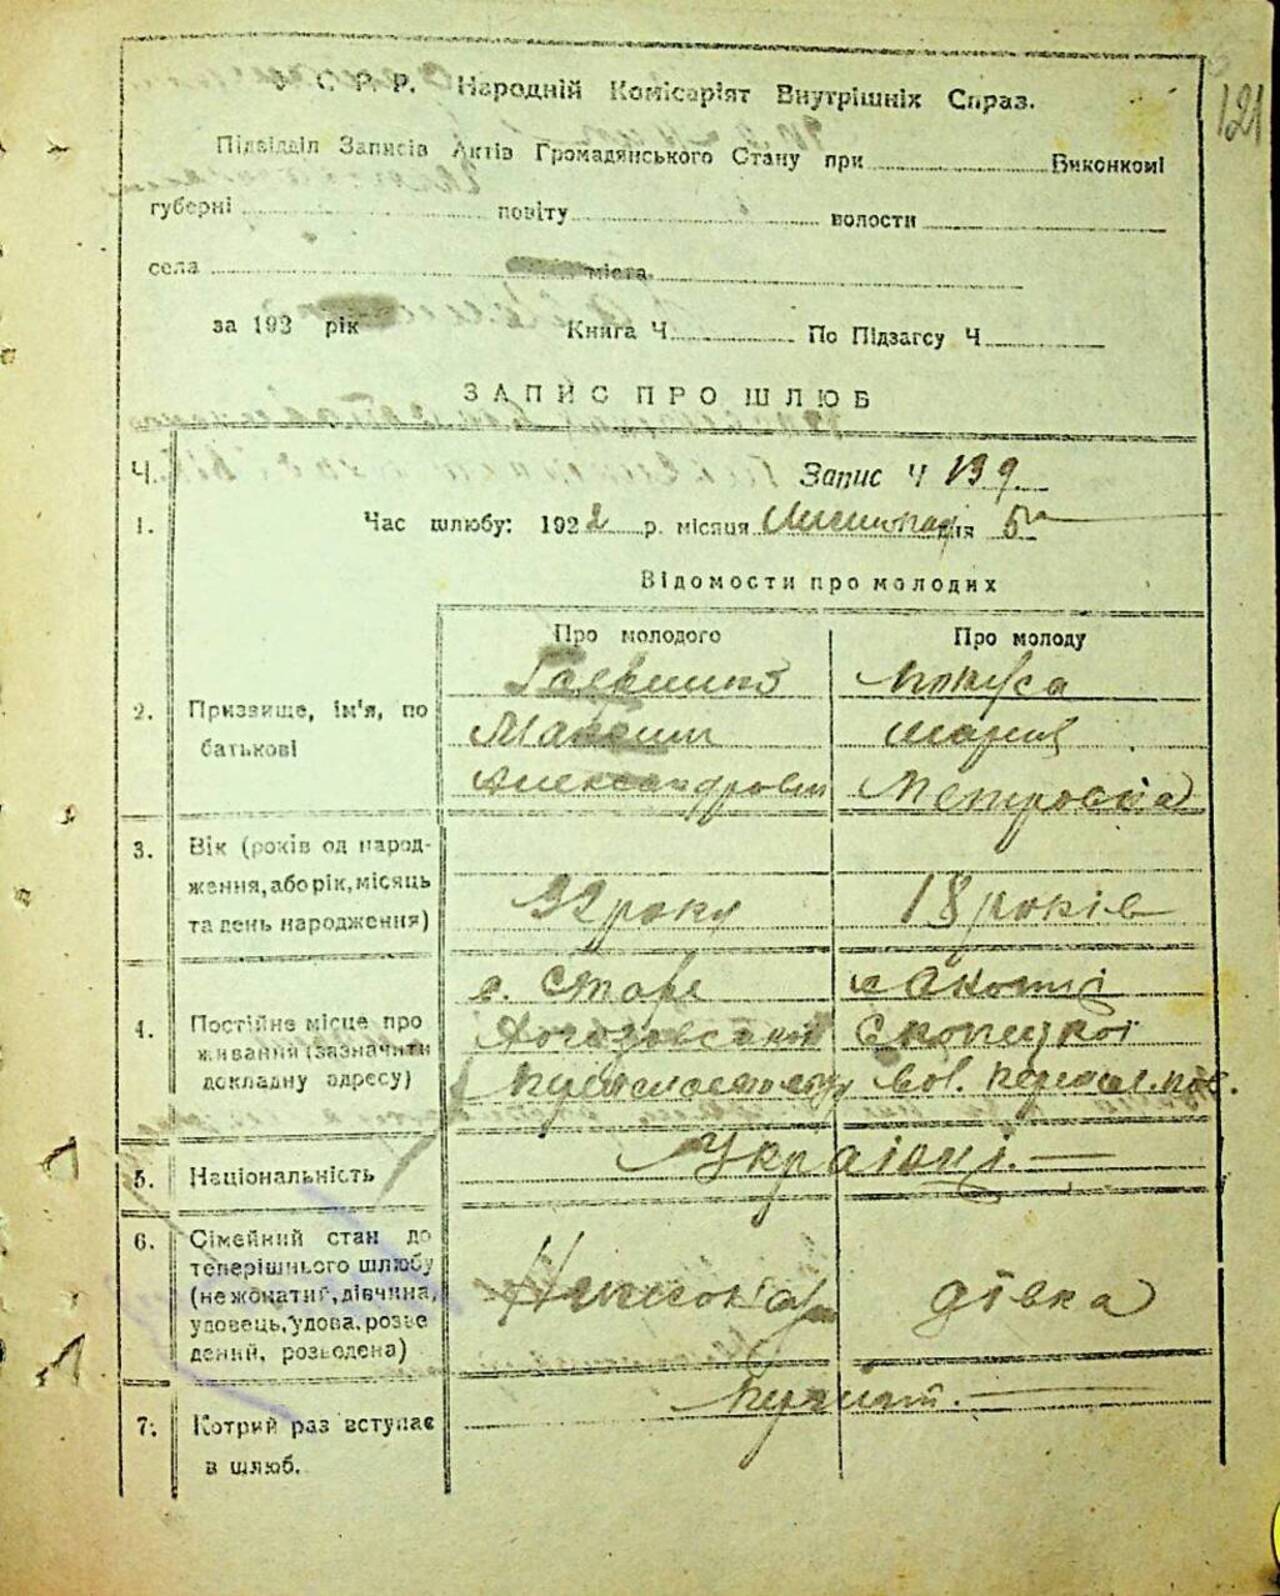 У. С. Р. Р. Народній Комісаріят Внутрішніх Справ.
121
Підвідділ Записів Актів Громадянського Стану при Виконкомі
губерні повіту волости
села міста
за 192 рік Книга Ч. По Підзагсу Ч.
ЗАПИС ПРО ШЛЮБ
Ч. Запис Ч 139
1. Час шлюбу: 1922 р. місяця Листопад дня 5
Відомости про молодих
Про молодого Про молоду
2. Призвище, ім'я, по
батькові
Максим Мария
Александрович Петровна
3. Вік (років од народ-
ження, або рік, місяць
та день народження)
22 року 18 років
4. Постійне місце про
живання (зазначити
докладну адресу)
с. Старе
Вол. Переясл. пов.
5. Національність Українці.
6. Сімейний стан до
теперішнього шлюбу
(нежонатий, дівчина,
удовець, удова, розве
дений, розведена)
дівка
7. Котрий раз вступає
в шлюб.
Перший.